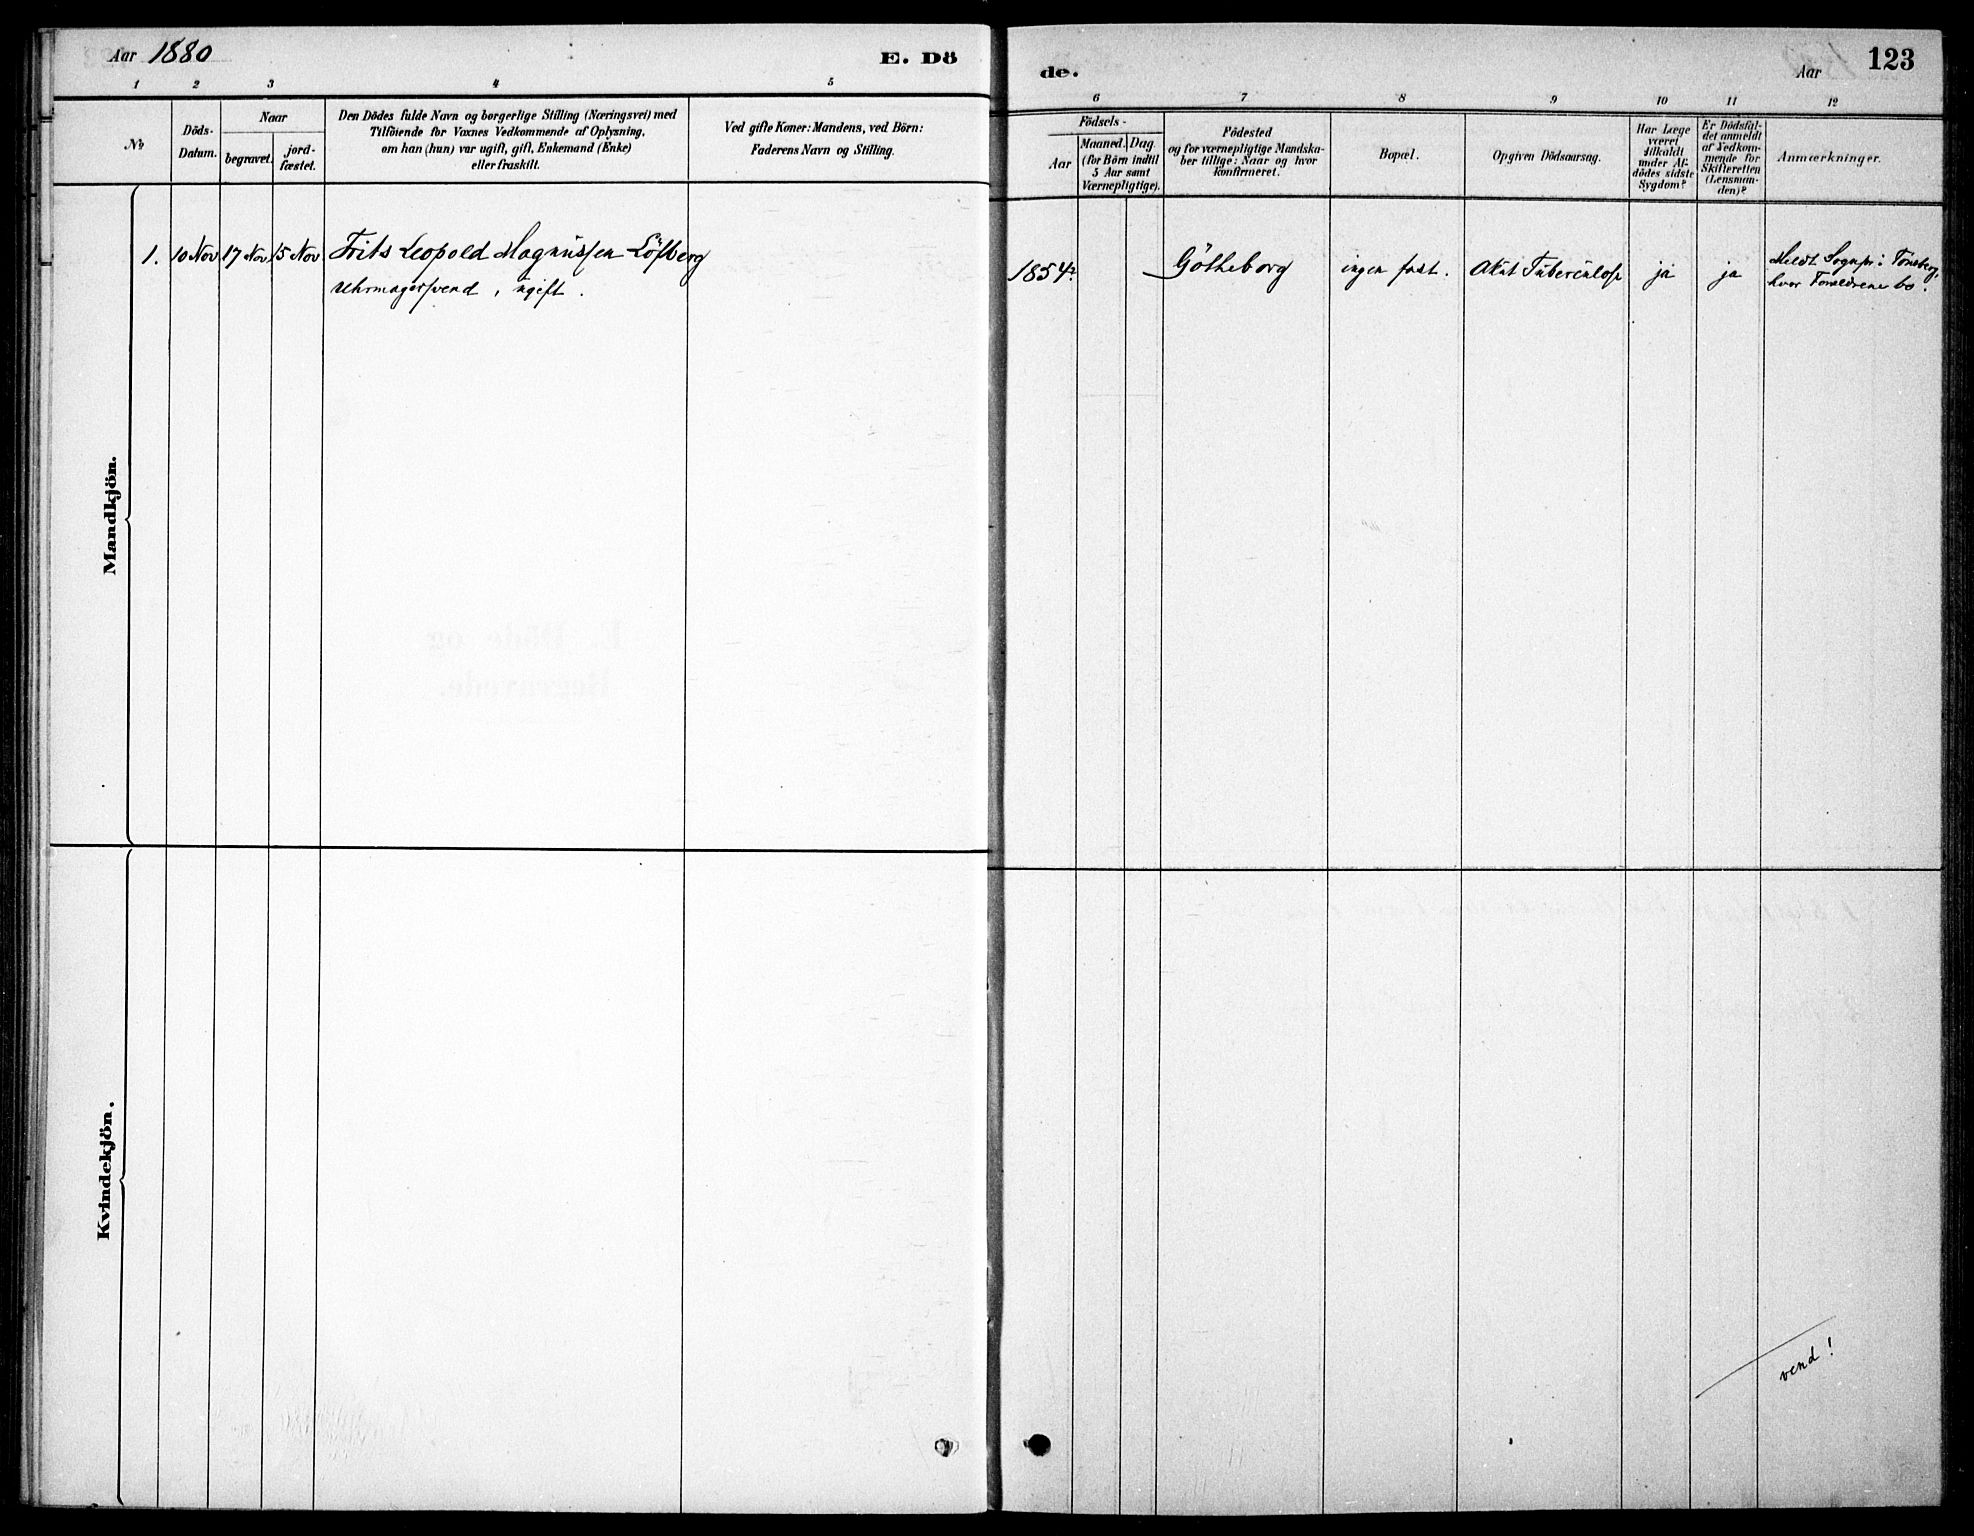 Aar 1880
E. Dö
de.
Aar
123
1 2 3 4 5
6 7 8 9 10 11 12
No
Döds-
Datum.
Naar
begravet.
jord-
fæstet.
Den Dödes fulde Navn og borgerlige Stilling (Næringsvei) med
Tilföiende for Voxnes Vedkommende af Oplysning,
om han (hun) var ugift, gift, Enkemand (Enke)
eller fraskilt.
Ved gifte Koner: Mandens, ved Börn:
Faderens Navn og Stilling.
Födsels-
Aar
Maaned. Dag
(for Börn indtil
5 Aar samt
Værnepligtige).
Födested
og for værnepligtige Mandska-
ber tillige: Naar og hvor
konfirmeret.
Bopæl.
Opgiven Dödsaarsag.
Har Læge
været
tilkaldt
under Af-
dödes sidste
Sygdom?
Er Dödsfal-
det anmeldt
af Vedkom-
mende for
Skifteretten
(Lensman-
den)?
Anmærkninger.
Mandkjön.
1. 10 Nov 17 Nov 15 Nov Frits Leopold Magnussen Löfberg
Uhrmagersvend, ugift.
1854? Götheborg ingen fast. Akut Tuberculose ja ja
Meldt Sognpr. i Tönsberg,
hvor Forældrene bo.
Kvindekjön.
vend!
E. Döde og
Begravede.